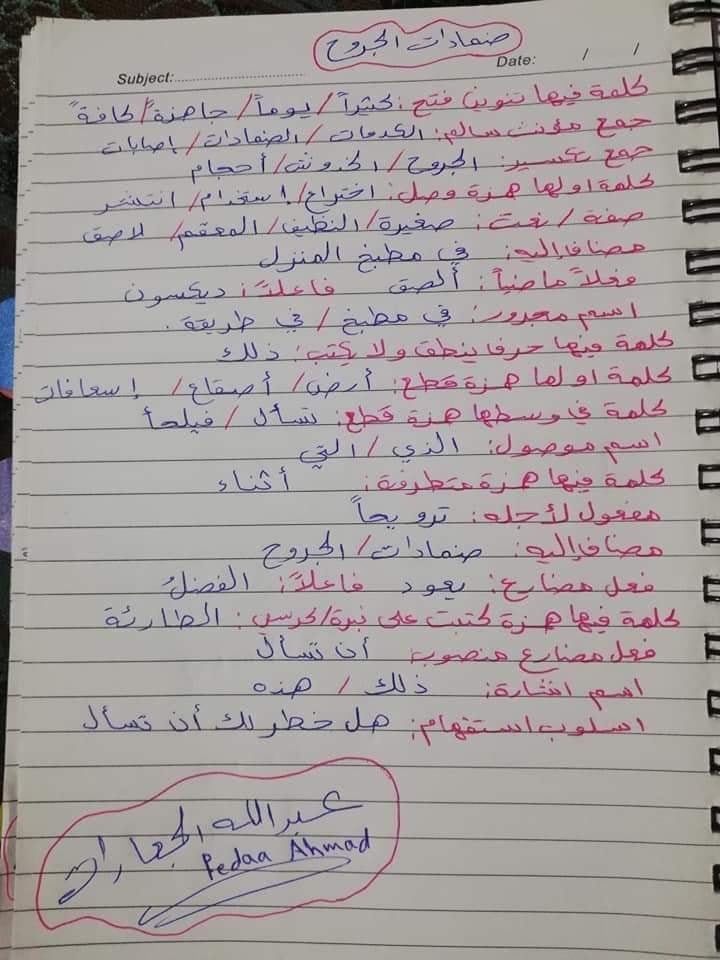 ضمادات الجروح
Subject:
Date: / /
كلمة فيها تنوين فتح: كثيراً / يوماً / جاهزة / كافة ً
جمع مؤنث سالم: الكدمات / الضمادات / إصابات
جمع تكسير: الجروح / الخدوش / أحجام
كلمة اولها همزة وصل: اختراع / استخدام / انتشر
صفة / نعت: صغيرة / النظيف / المعقم / لاصق
مضاف إليه: في مطبخ المنزل
فعلاً ماضياً: ألصق فاعلاً: ديكسون
اسم مجرور: في مطبخ / في طريقة.
كلمة فيها حرفا ينطق ولا يكتب: ذلك
كلمة اولها همزة قطع: أرض / أصقاع / إسعافات
كلمة في وسطها همزة قطع: تسأل / فيلجأ
اسم موصول: الذي / التي
كلمة فيها همزة متطرفة: أثناء
مفعول لأجله: ترويحاً
مضاف إليه: ضمادات / الجروح
فعل مضارع: يعود فاعلاً: الفضلُ
كلمة فيها همزة كتبت على نبرة / كرسي: الطارئة
فعل مضارع منصوب: أن تسأل
اسم اشارة: ذلك / هذه
اسلوب استفهام: هل خطر لك أن تسأل
عبدالله الجعارات
Pedaa Ahmad